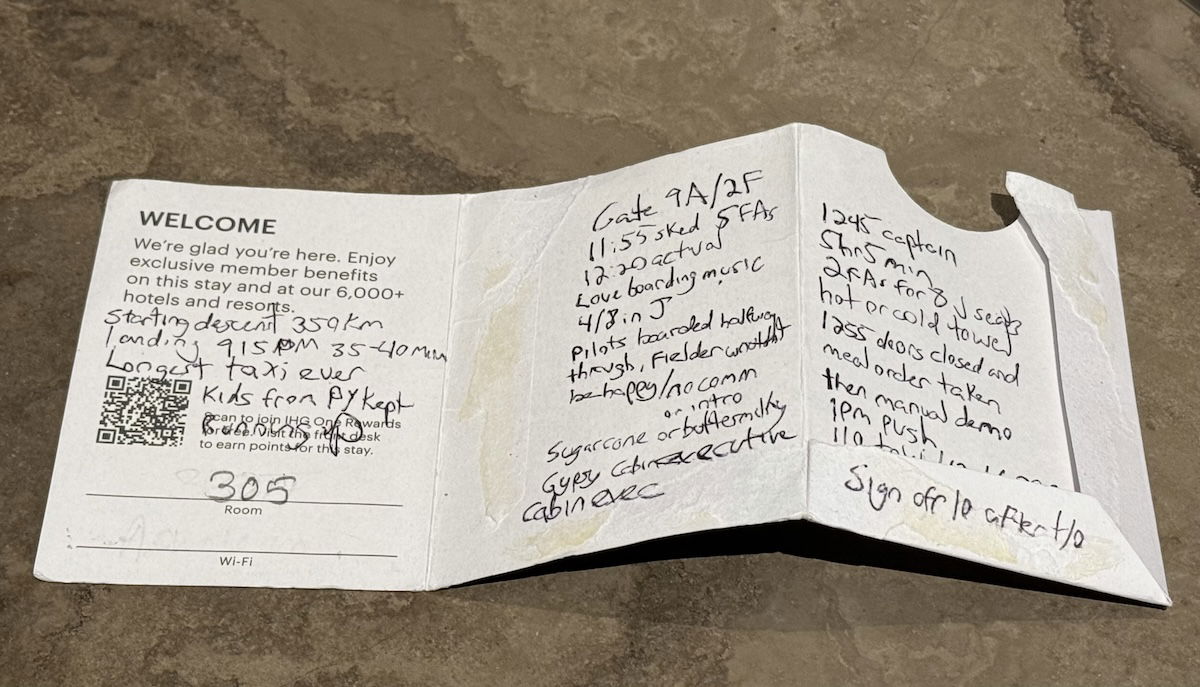 WELCOME
We're glad you're here. Enjoy
exclusive member benefits
on this stay and at our 6,000+
hotels and resorts.
Starting descent 359km
landing 915 PM 35-40 min
Longest taxi ever
Kids from PY kept
Running
Scan to join IHG One Rewards
for free. Visit the front desk
to earn points for this stay.
305
Room
Wi-Fi
Gate 9A/2F
11:55 sked 5 FAs
12:20 actual
Love boarding music
4/8 in J
Pilots boarded halfway
through, Fielder wouldnt
be happy/no comm
or intro
Sugarcane or buttermilky
Gypsy cabin executive
cabin exec
1245 captain
5hr5 min
2FAs for 8 J seats
hot or cold towel
1255 doors closed and
meal order taken
then manual demo
1pm push
110
Sign off 10 after t/o